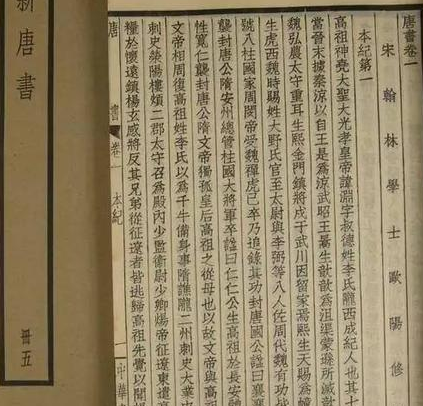 唐書卷一
宋翰林學士歐陽修
本紀第一
高祖神堯大聖大光孝皇帝諱淵字叔德姓李氏隴西成紀人也其七
當晉末據秦涼以自王是為涼武昭王暠生歆歆為沮渠蒙遜所滅歆
魏弘農太守重耳生熙金門鎮將戍于武川因留家焉熙生天賜為幢
生虎西魏時賜姓大野氏官至太尉與李弼等八人佐周代魏有功皆
號八柱國家周閔帝受魏禪虎已卒乃追錄其功封唐國公諡曰襄襄
襲封唐公隋安州總管柱國大將軍卒諡曰仁仁公生高祖於長安體
性寬仁襲封唐公隋文帝獨孤皇后高祖之從母也以故文帝與高祖
文帝相周復高祖姓李氏以為千牛備身事隋譙隴二州刺史大業中
刺史滎陽樓煩二郡太守召為殿內少監衛尉少卿煬帝征遼東遣高
糧於懷遠鎮楊玄感將反其兄弟從征遼者皆逃歸高祖先覺以聞煬
唐書 卷一 本紀 一 中華
新唐書
冊五